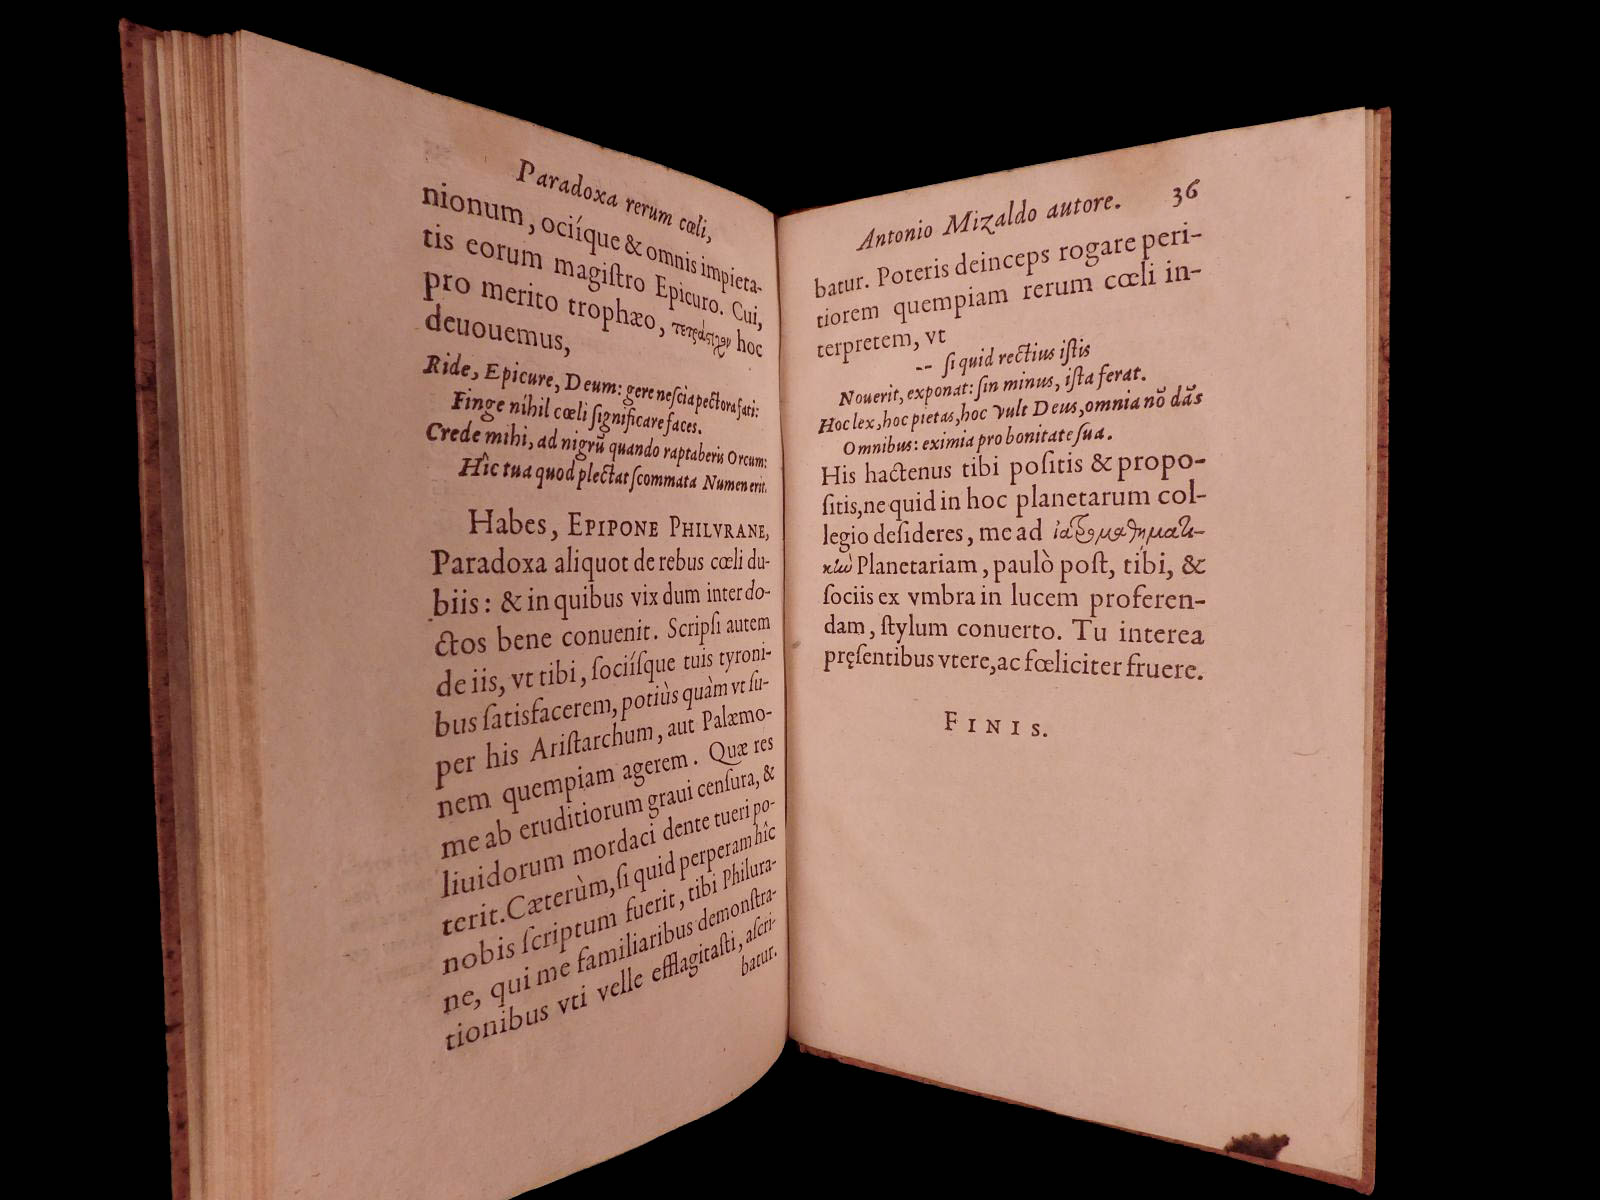 Paradoxa rerum cœli,
nionum, ociíque & omnis impieta-
tis eorum magiſtro Epicuro. Cui,
pro merito trophæo, τετράστιχον hoc
deuouemus,
Ride, Epicure, Deum: gere neſcia pectora fati:
Finge nihil cœli ſignificare faces.
Crede mihi, ad nigrũ quando raptaberis Orcum:
Hîc tua quod plectat ſcommata Numen erit.
Habes, EPIPONE PHILVRANE,
Paradoxa aliquot de rebus cœli du-
biis: & in quibus vix dum inter do-
ctos bene conuenit. Scripſi autem
de iis, vt tibi, ſociíſque tuis tyroni-
bus ſatisfacerem, potiùs quàm vt ſu-
per his Ariſtarchum, aut Palæmo-
nem quempiam agerem. Quæ res
me ab eruditiorum graui cenſura, &
liuidorum mordaci dente tueri po-
terit. Cæterùm, ſi quid perperam hîc
nobis ſcriptum fuerit, tibi Philura-
ne, qui me familiaribus demonſtra-
tionibus vti velle efflagitaſti, aſcri-
batur.
Antonio Mizaldo autore. 36
batur. Poteris deinceps rogare peri-
tiorem quempiam rerum cœli in-
terpretem, vt
-- ſi quid rectius iſtis
Nouerit, exponat: ſin minus, iſta ferat.
Hoc lex, hoc pietas, hoc vult Deus, omnia nõ dãs
Omnibus: eximia pro bonitate ſua.
His hactenus tibi poſitis & propo-
ſitis, ne quid in hoc planetarum col-
legio deſideres, me ad ἰατρομαθηματι-
κὴν Planetariam, paulò poſt, tibi, &
ſociis ex vmbra in lucem proferen-
dam, ſtylum conuerto. Tu interea
pręſentibus vtere, ac fœliciter fruere.
FINIS.